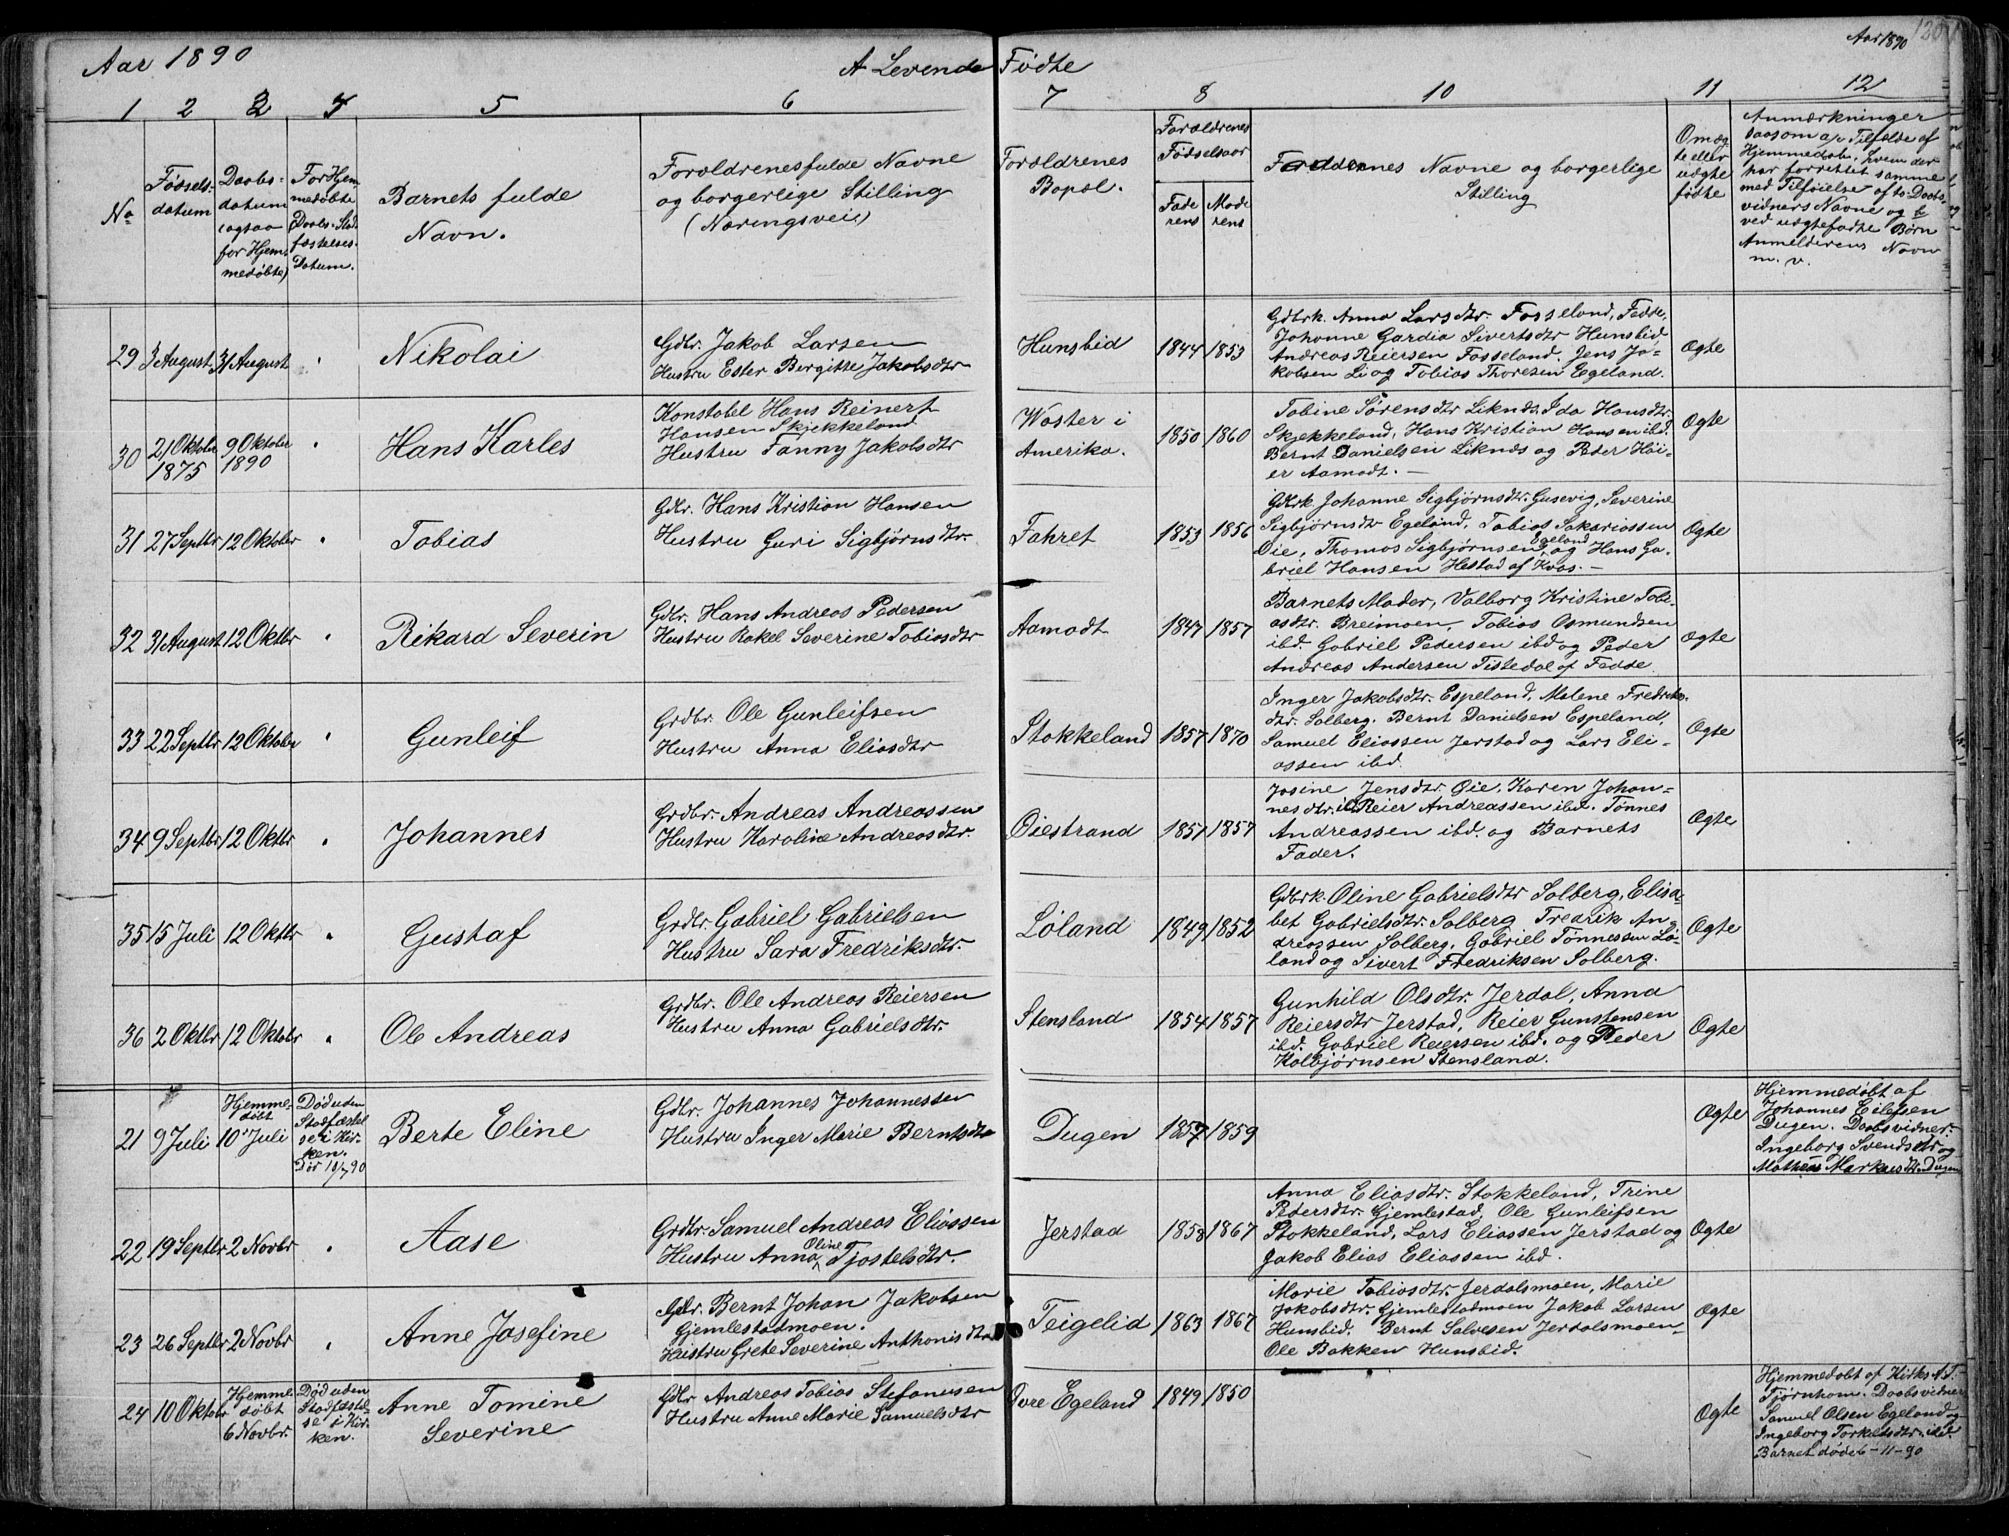 Aar 1890
A Levende Fødte
Aar 1890
1 2 3 4 5 6 7 8 10 11 12
No
Fødsels-
datum
Daabs-
datum
(ogsaa
for Hjem-
medøbte)
For Hjem-
medøbte
Daabs-Stad-
fæstelses-
Datum.
Barnets fulde
Navn.
Forældrenes fulde Navne
og borgerlige Stilling
(Næringsvei)
Forældrenes
Bopæl.
Forældrenes
Fødselsaar
Fade
rens
Mode
rens
Faddernes Navne og borgerlige
Stilling
Omæg-
te eller
uægte
fødte
Anmærkninger
saasom a, Tilfælde af
Hjemmedøb, hvem der
har forrettet samme
med Tilføielse af to Daabs-
vidners Navne og b
ved uægtefødte Børn
Anmelderens Navn
m. v.
29 3 August 31 August "
Nikolai
Gdbr. Jakob Larsen
Hustru Ester Bergitte Jakobsdtr
Hunsbid
1844 1853
Gdbrk. Anna Larsdtr. Fosseland, Fedde,
Johanne Gardia Sivertsdtr Hunsbid
Andreas Reiersen Fosseland. Jens Ja-
kobsen Li og Tobias Thoresen Egeland.
Ægte
30 21 Oktober 1875
9 Oktober 1890 "
Hans Karles
Konstabel Hans Reinert
Hansen Skjekkeland
Hustru Fanny Jakobsdtr
Woster i
Amerika.
1850 1860
Tobine Sørensdtr Liknds, Ida Hansdtr.
Skjekkeland, Hans Kristian Hansen ibd.
Bernt Danielsen Liknds og Peder Høi-
er Aamodt. —
Ægte
31 27 Septbr 12 Oktober "
Tobias
Gdbr. Hans Kristian Hansen
Hustru Guri Sigbjørnsdtr
Fahret
1853 1856
Gdbrk. Johanne Sigbjørnsdtr. Gusevig, Severine
Sigbjørnsdtr Egeland, Tobias Sakariassen
Øie, Thomas Sigbjørnsen Egeland og Hans Ga-
briel Hansen Hestad af Kvas. —
Ægte
32 31 August 12 Oktbr "
Rikard Severin
Gdbr. Hans Andreas Pedersen
Hustru Rakel Severine Tobiasdtr
Aamodt
1847 1857
Barnets Moder, Valborg Kristine Tobi-
asdtr. Breimoen, Tobias Osmundsen
ibd. Gabriel Pedersen ibd og Peder
Andreas Andersen Tistedal af Fedde
Ægte
33 22 Septbr 12 Oktober "
Gunleif
Grdbr. Ole Gunleifsen
Hustru Anna Eliasdtr
Stokkeland
1857 1870
Inger Jakobsdtr. Espeland, Malene Fredriks-
dtr. Solberg. Bernt Danielsen Espeland,
Samuel Eliassen Jerstad og Lars Eli-
assen ibd.
Ægte
34 9 Septbr 12 Oktbr "
Johannes
Grdbr. Andreas Andreassen
Hustru Karoline Andreasdtr.
Øiestrand
1857 1857
Josine Jensdtr Øie, Karen Johan-
nesdtr. ibd Reier Andreassen ibd. Tønnes
Andreassen ibd. og Barnets
Fader.
Ægte
35 15 Juli 12 Oktbr "
Gustaf
Grdbr. Gabriel Gabrielsen
Hustru Sara Fredriksdtr.
Løland
1849 1852
Gdbrk. Oline Gabrielsdtr Solberg, Elisa-
bet Gabrielsdtr. Solberg Fredrik An-
dreassen Solberg. Gabriel Tønnessen Lø-
land og Sivert Fredriksen Solberg.
Ægte
36 2 Oktbr 12 Oktobr "
Ole Andreas
Grdbr. Ole Andreas Reiersen
Hustru Anna Gabrielsdtr.
Stensland
1854 1857
Gunhild Olsdtr. Jerdal, Anna
Reiersdtr Jerstad, Reier Gunstensen
ibd. Gabriel Reiersen ibd. og Peder
Kolbjørnsen Stensland.
Ægte
21 9 Juli
Hjemme-
døbt
10 Juli
Død uden
Stadfæstel
se i Kir-
ken.
Dør 10/7 90
Berte Eline
Gdbr. Johannes Johannessen
Hustru Inger Marie Berntsdtr
Dugen
1857 1859
Ægte
Hjemmedøbt af
Johannes Eilefsen
Dugen. Daabsvidner:
Ingeborg Svendsdtr og
Mathias Markusdtr Dugen
22 19 Septbr 2 Novbr "
Aase
Grdbr. Samuel Andreas Eliassen
Hustru Anna Oline Tjostelsdtr.
Jerstad
1858 1867
Anna Eliasdtr. Stokkeland, Trine
Pedersdtr. Gjemlestad, Ole Gunleifsen
Stokkeland, Lars Eliassen Jerstad og
Jakob Elias Eliassen ibd.
Ægte
23 26 Septbr 2 Novbr "
Anne Josefine
Gdbr. Bernt Johan Jakobsen
Gjemlestadmoen.
Hustru Grete Severine Anthonisdtr
Teigelid
1863 1867
Marie Tobiasdtr. Jerdalsmoen, Marie
Jakobsdtr. Gjemlestadmoen Jakob Larsen
Hunsbid. Bernt Salvesen Jerdalsmoen-
Ole Bakken Hunsbid.
Ægte
24 10 Oktobr
Hjemme
døbt
6 Novbr.
Død uden
Stadfæstel
se i Kir-
ken.
Anne Tomine
Severine
Gdbr Andreas Tobias Stefanusen
Hustru Anne Marie Samuelsdtr
Øvre Egeland
1849 1850
Ægte
Hjemmedøbt af Kirks. A. T.
Tjørnhom. Daabsvidner
Samuel Olsen Egeland og
Ingeborg Torkelsdtr. ibd.
Barnet døde 6-11-90